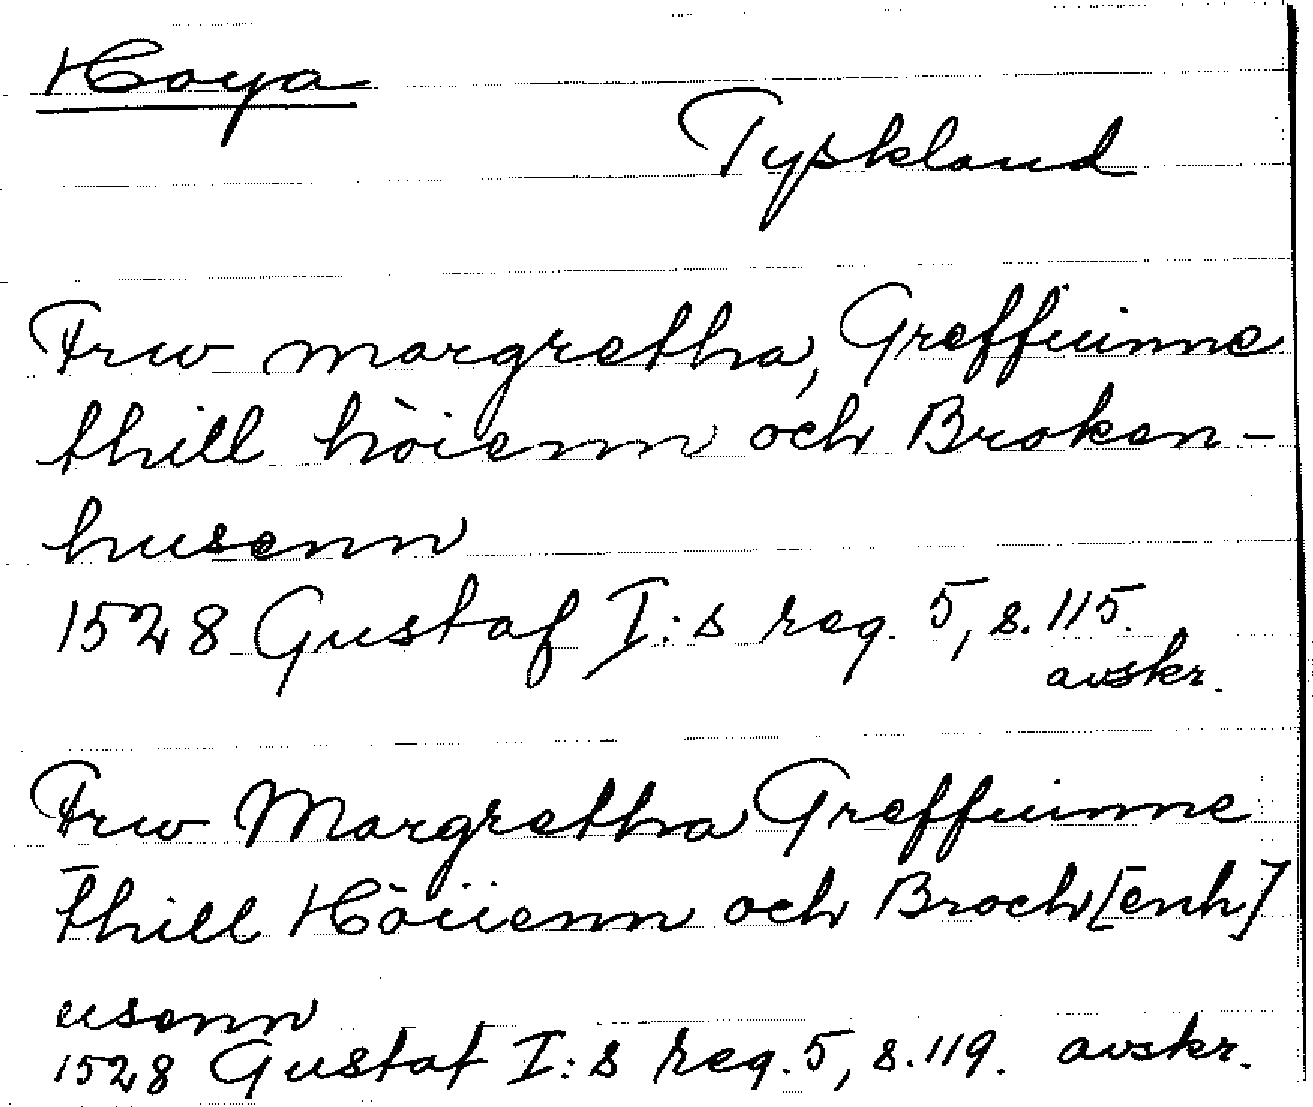 Hoya
Tyskland
Frw margretha, Greffuinne
thill hòienn och Broken-
husenn
1528 Gustaf I:s reg. 5, s. 115.
avskr.
Frw Margretha Greffuinne
thill Hòiienn och Broch[enh]
usenn
1528 Gustaf I:s reg. 5, s. 119. avskr.